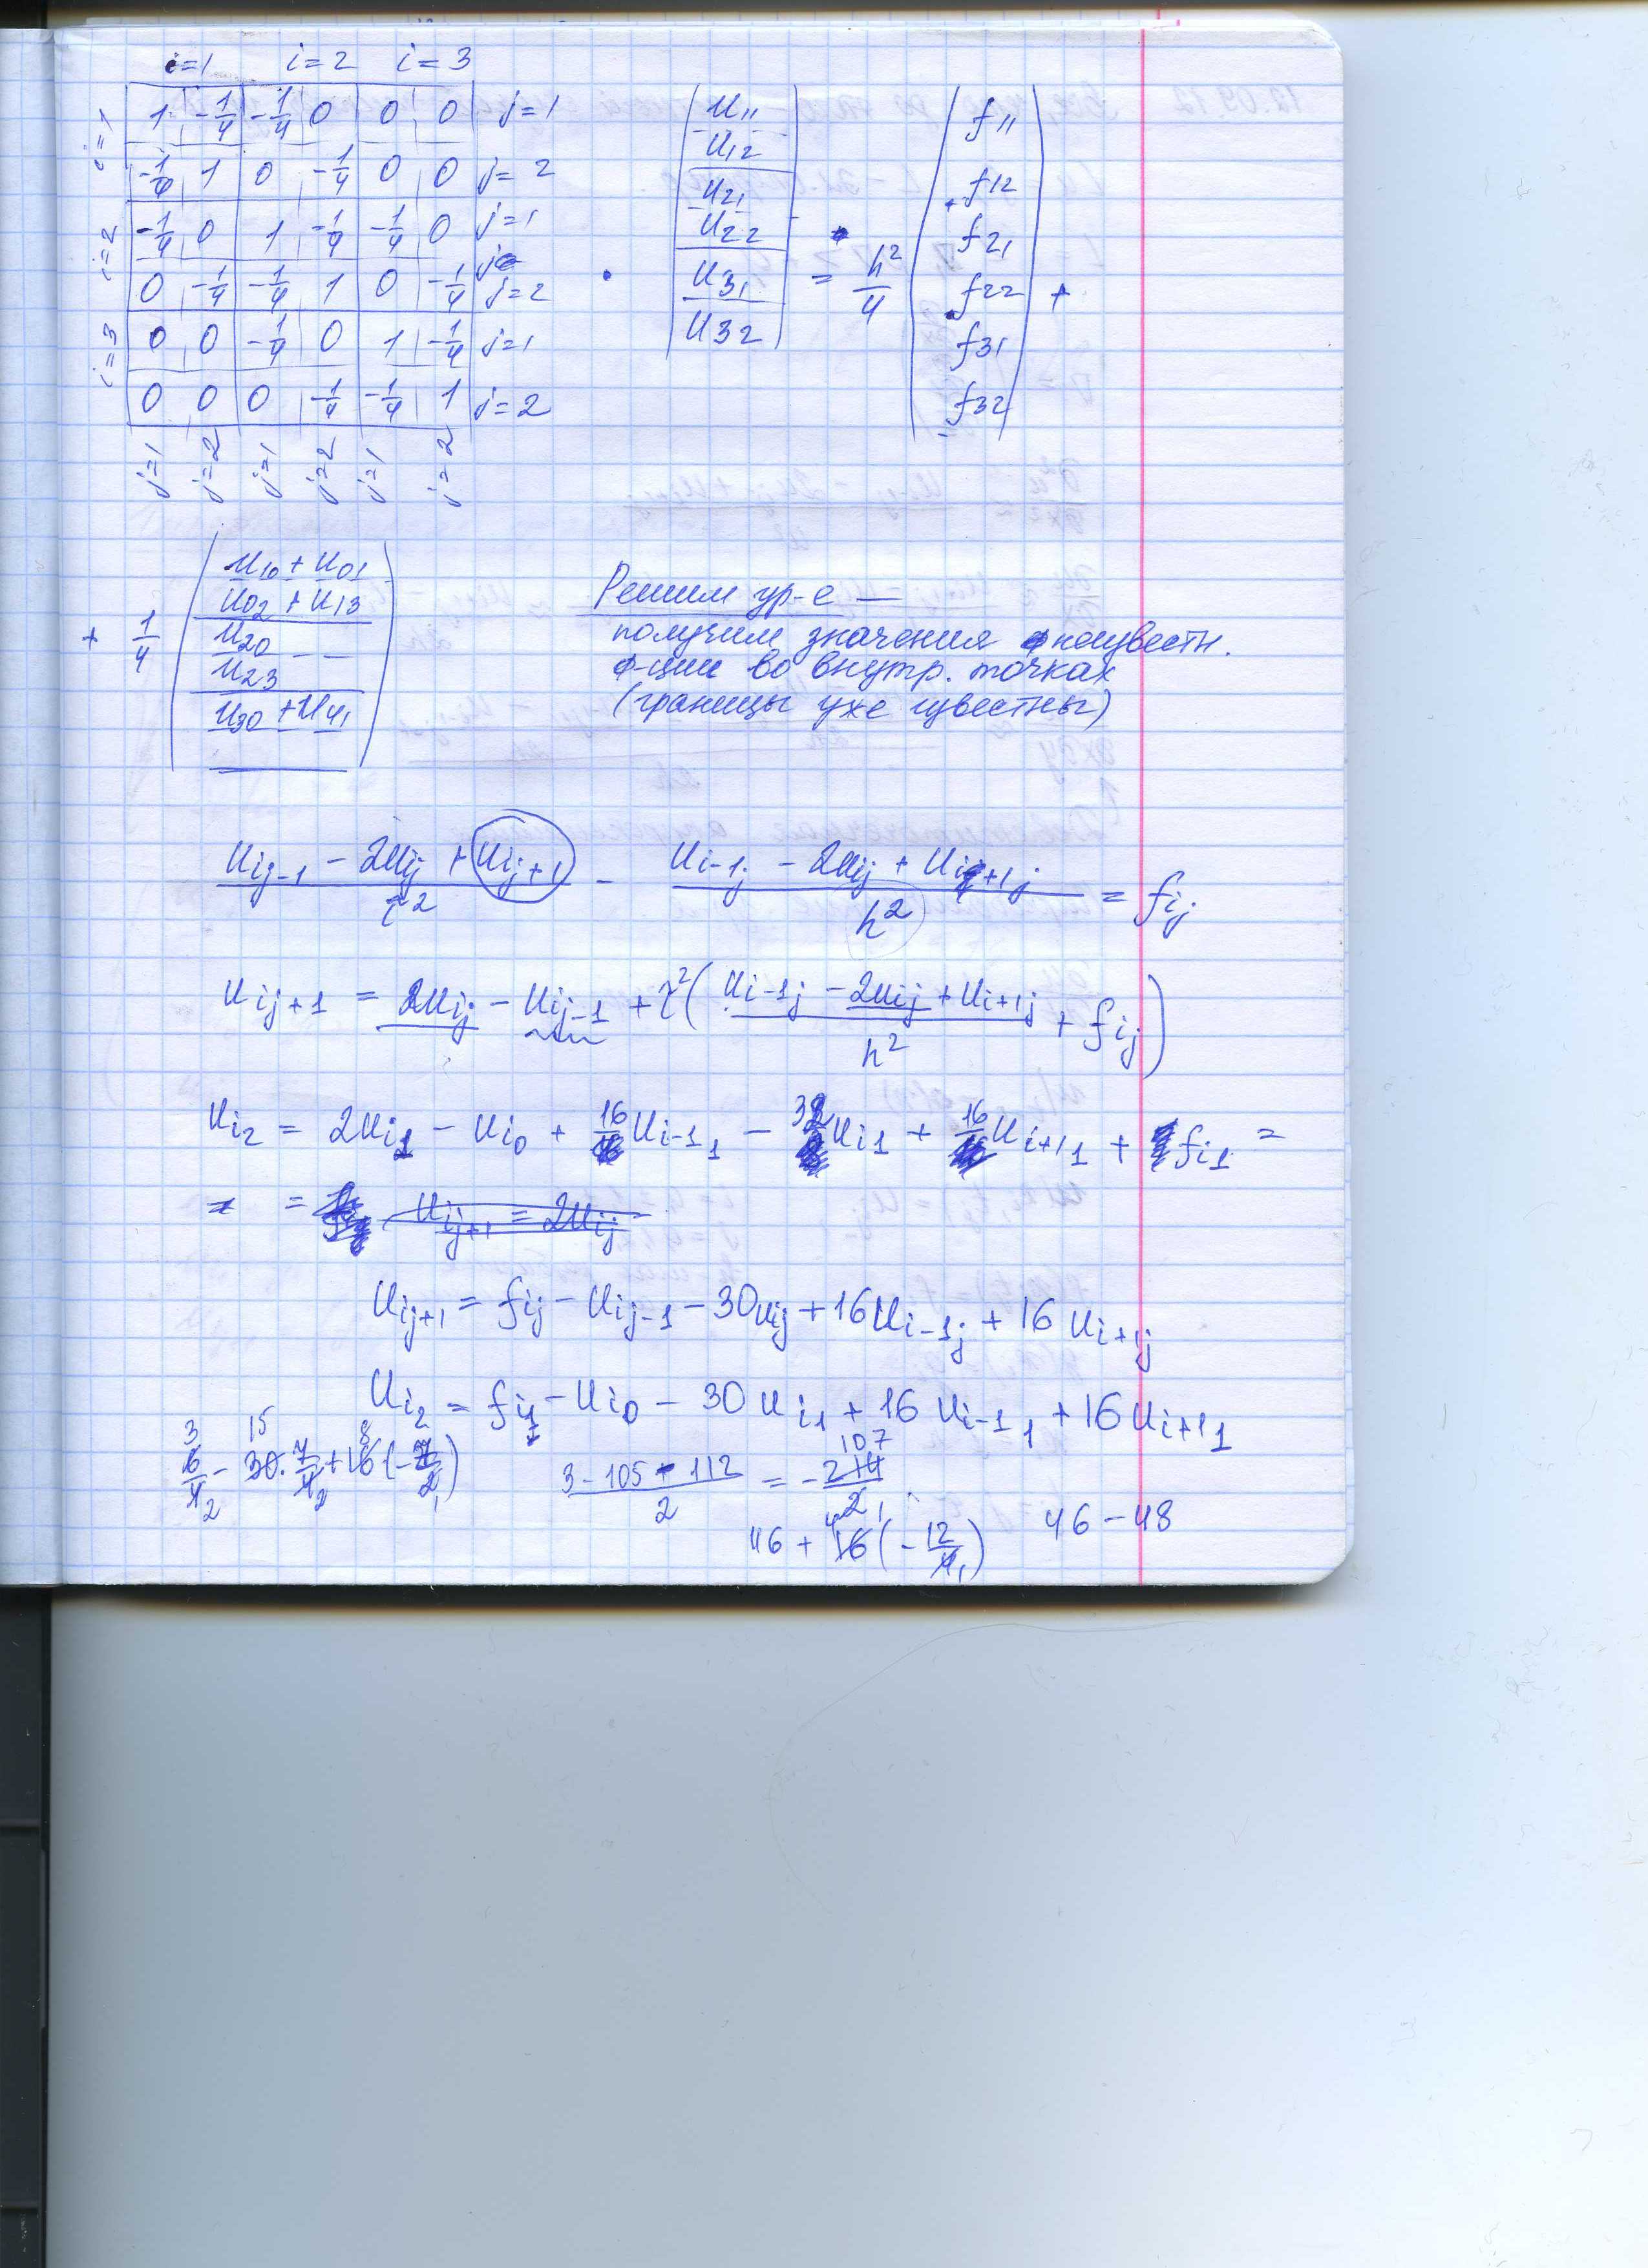 i=1 i=2 i=3
i=1 1 -1/4 -1/4 0 0 0 j=1
-1/4 1 0 -1/4 0 0 j=2
i=2 -1/4 0 1 -1/4 -1/4 0 j=1
0 -1/4 -1/4 1 0 -1/4 j=2
i=3 0 0 -1/4 0 1 -1/4 j=1
0 0 0 -1/4 -1/4 1 j=2
j=1 j=2 j=1 j=2 j=1 j=2
·
u11
u12
u21
u22
u31
u32
= h²/4
f11
f12
f21
f22
f31
f32
+
+ 1/4
u10 + u01
u02 + u13
u20 — —
u23
u30 + u41
Решим ур-е —
получим значения неизвестн.
ф-ции во внутр. точках
(границы уже известны)
(uij-1 - 2uij + uij+1)/τ² - (ui-1j - 2uij + ui+1j)/h² = fij
uij+1 = 2uij - uij-1 + τ²((ui-1j - 2uij + ui+1j)/h² + fij)
ui2 = 2ui1 - ui0 + 16ui-1 1 - 32ui1 + 16ui+1 1 + fi1 =
= uij+1 = 2uij
uij+1 = fij - uij-1 - 30uij + 16ui-1j + 16ui+1j
ui2 = fi1 - ui0 - 30ui1 + 16ui-1 1 + 16ui+1 1
3 15 8
6/4 2 - 30·7/4 2 + 16(-7/2 1)
(3 - 105 - 112)/2 = -214/2 1 107
46 + 16(-12/4 1) 4
46 - 48